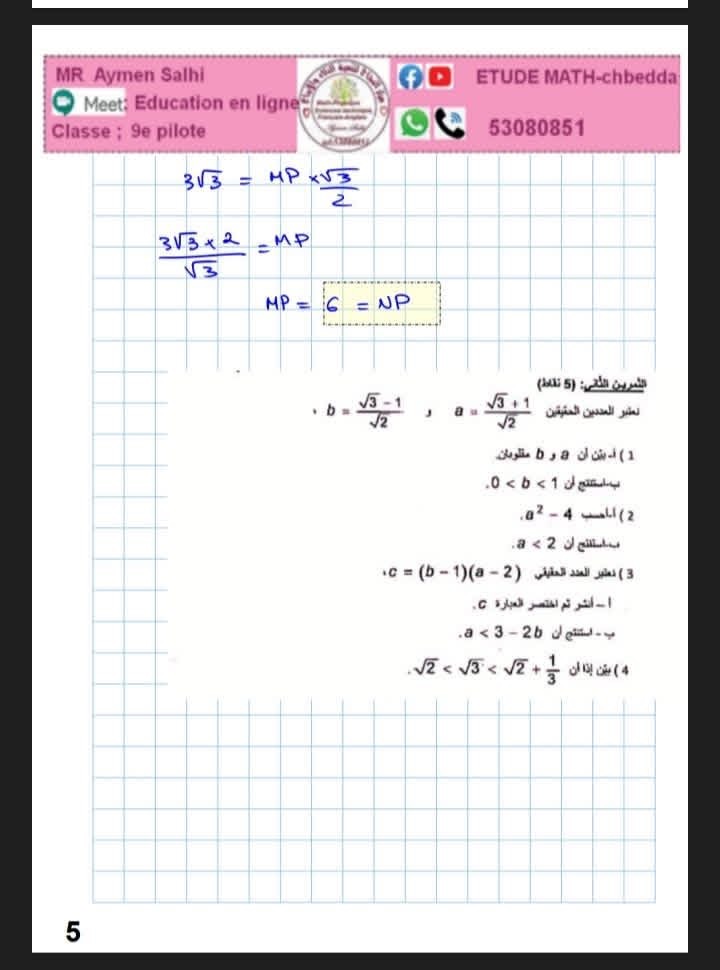 MR Aymen Salhi
Meet: Education en ligne
Classe ; 9e pilote
ETUDE MATH-chbedda
53080851
3√3 = MP × √3/2
(3√3 × 2)/√3 = MP
MP = 6 = NP
التمرين الثاني: (5 نقاط)
نعتبر العددين الحقيقيين a = (√3 + 1)/√2 و b = (√3 − 1)/√2 ،
1 ) أ- بيّن أن a و b مقلوبان.
ب-استنتج أن 0 < b < 1.
2 ) أ-احسب a² − 4.
ب-استنتج أن a < 2.
3 ) نعتبر العدد الحقيقي c = (b − 1)(a − 2)،
أ – أنشر ثم اختصر العبارة c.
ب - استنتج أن a < 3 − 2b.
4 ) بيّن إذا أن √2 < √3 < √2 + 1/3.
5